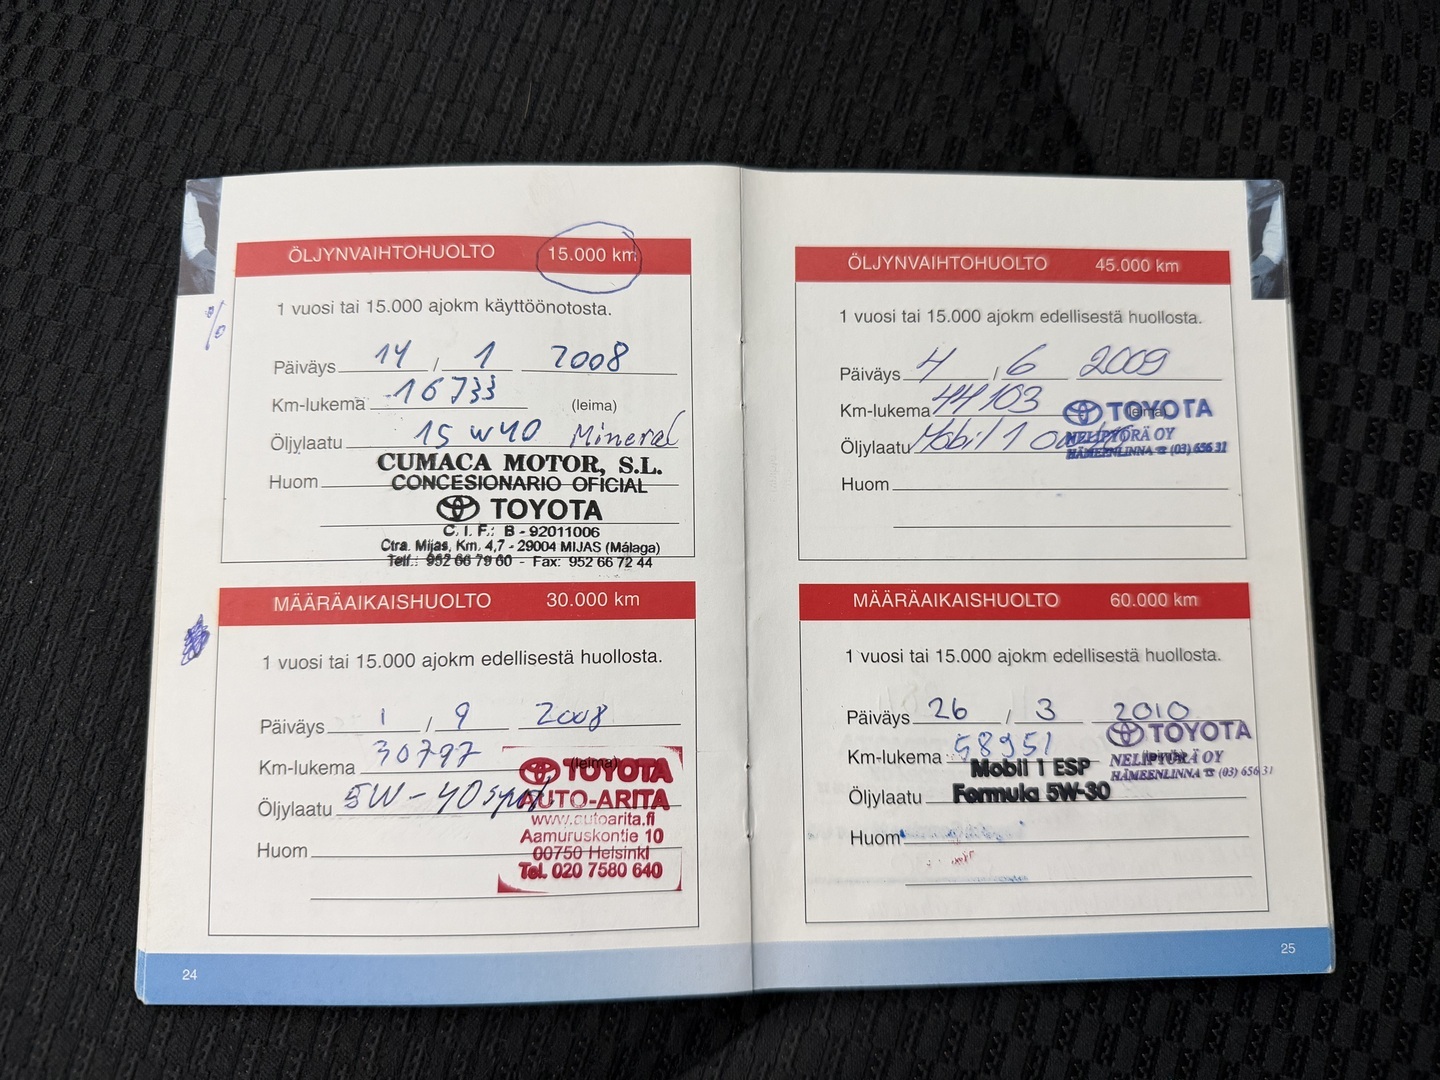 ÖLJYNVAIHTOHUOLTO 15.000 km
1 vuosi tai 15.000 ajokm käyttöönotosta.
Päiväys 14 / 1 2008
Km-lukema 16733 (leima)
Öljylaatu 15W40 Mineral
Huom
CUMACA MOTOR, S.L.
CONCESIONARIO OFICIAL
TOYOTA
C. I. F.: B - 92011006
Ctra. Mijas, Km. 4,7 - 29004 MIJAS (Málaga)
Telf.: 952 66 79 60 - Fax: 952 66 72 44
MÄÄRÄAIKAISHUOLTO 30.000 km
1 vuosi tai 15.000 ajokm edellisestä huollosta.
Päiväys 1 / 9 2008
Km-lukema 30797 (leima)
Öljylaatu 5W-40
Huom
TOYOTA
AUTO-ARITA
www.autoarita.fi
Aamuruskontie 10
00750 Helsinki
Tel. 020 7580 640
24
ÖLJYNVAIHTOHUOLTO 45.000 km
1 vuosi tai 15.000 ajokm edellisestä huollosta.
Päiväys 4 / 6 2009
Km-lukema 44103 (leima)
Öljylaatu Mobil 1
Huom
TOYOTA
NELIPYÖRÄ OY
HÄMEENLINNA ☎ (03) 656 31
MÄÄRÄAIKAISHUOLTO 60.000 km
1 vuosi tai 15.000 ajokm edellisestä huollosta.
Päiväys 26 / 3 2010
Km-lukema 58951
Öljylaatu Mobil 1 ESP
Formula 5W-30
Huom
TOYOTA
NELIPYÖRÄ OY
HÄMEENLINNA ☎ (03) 656 31
25